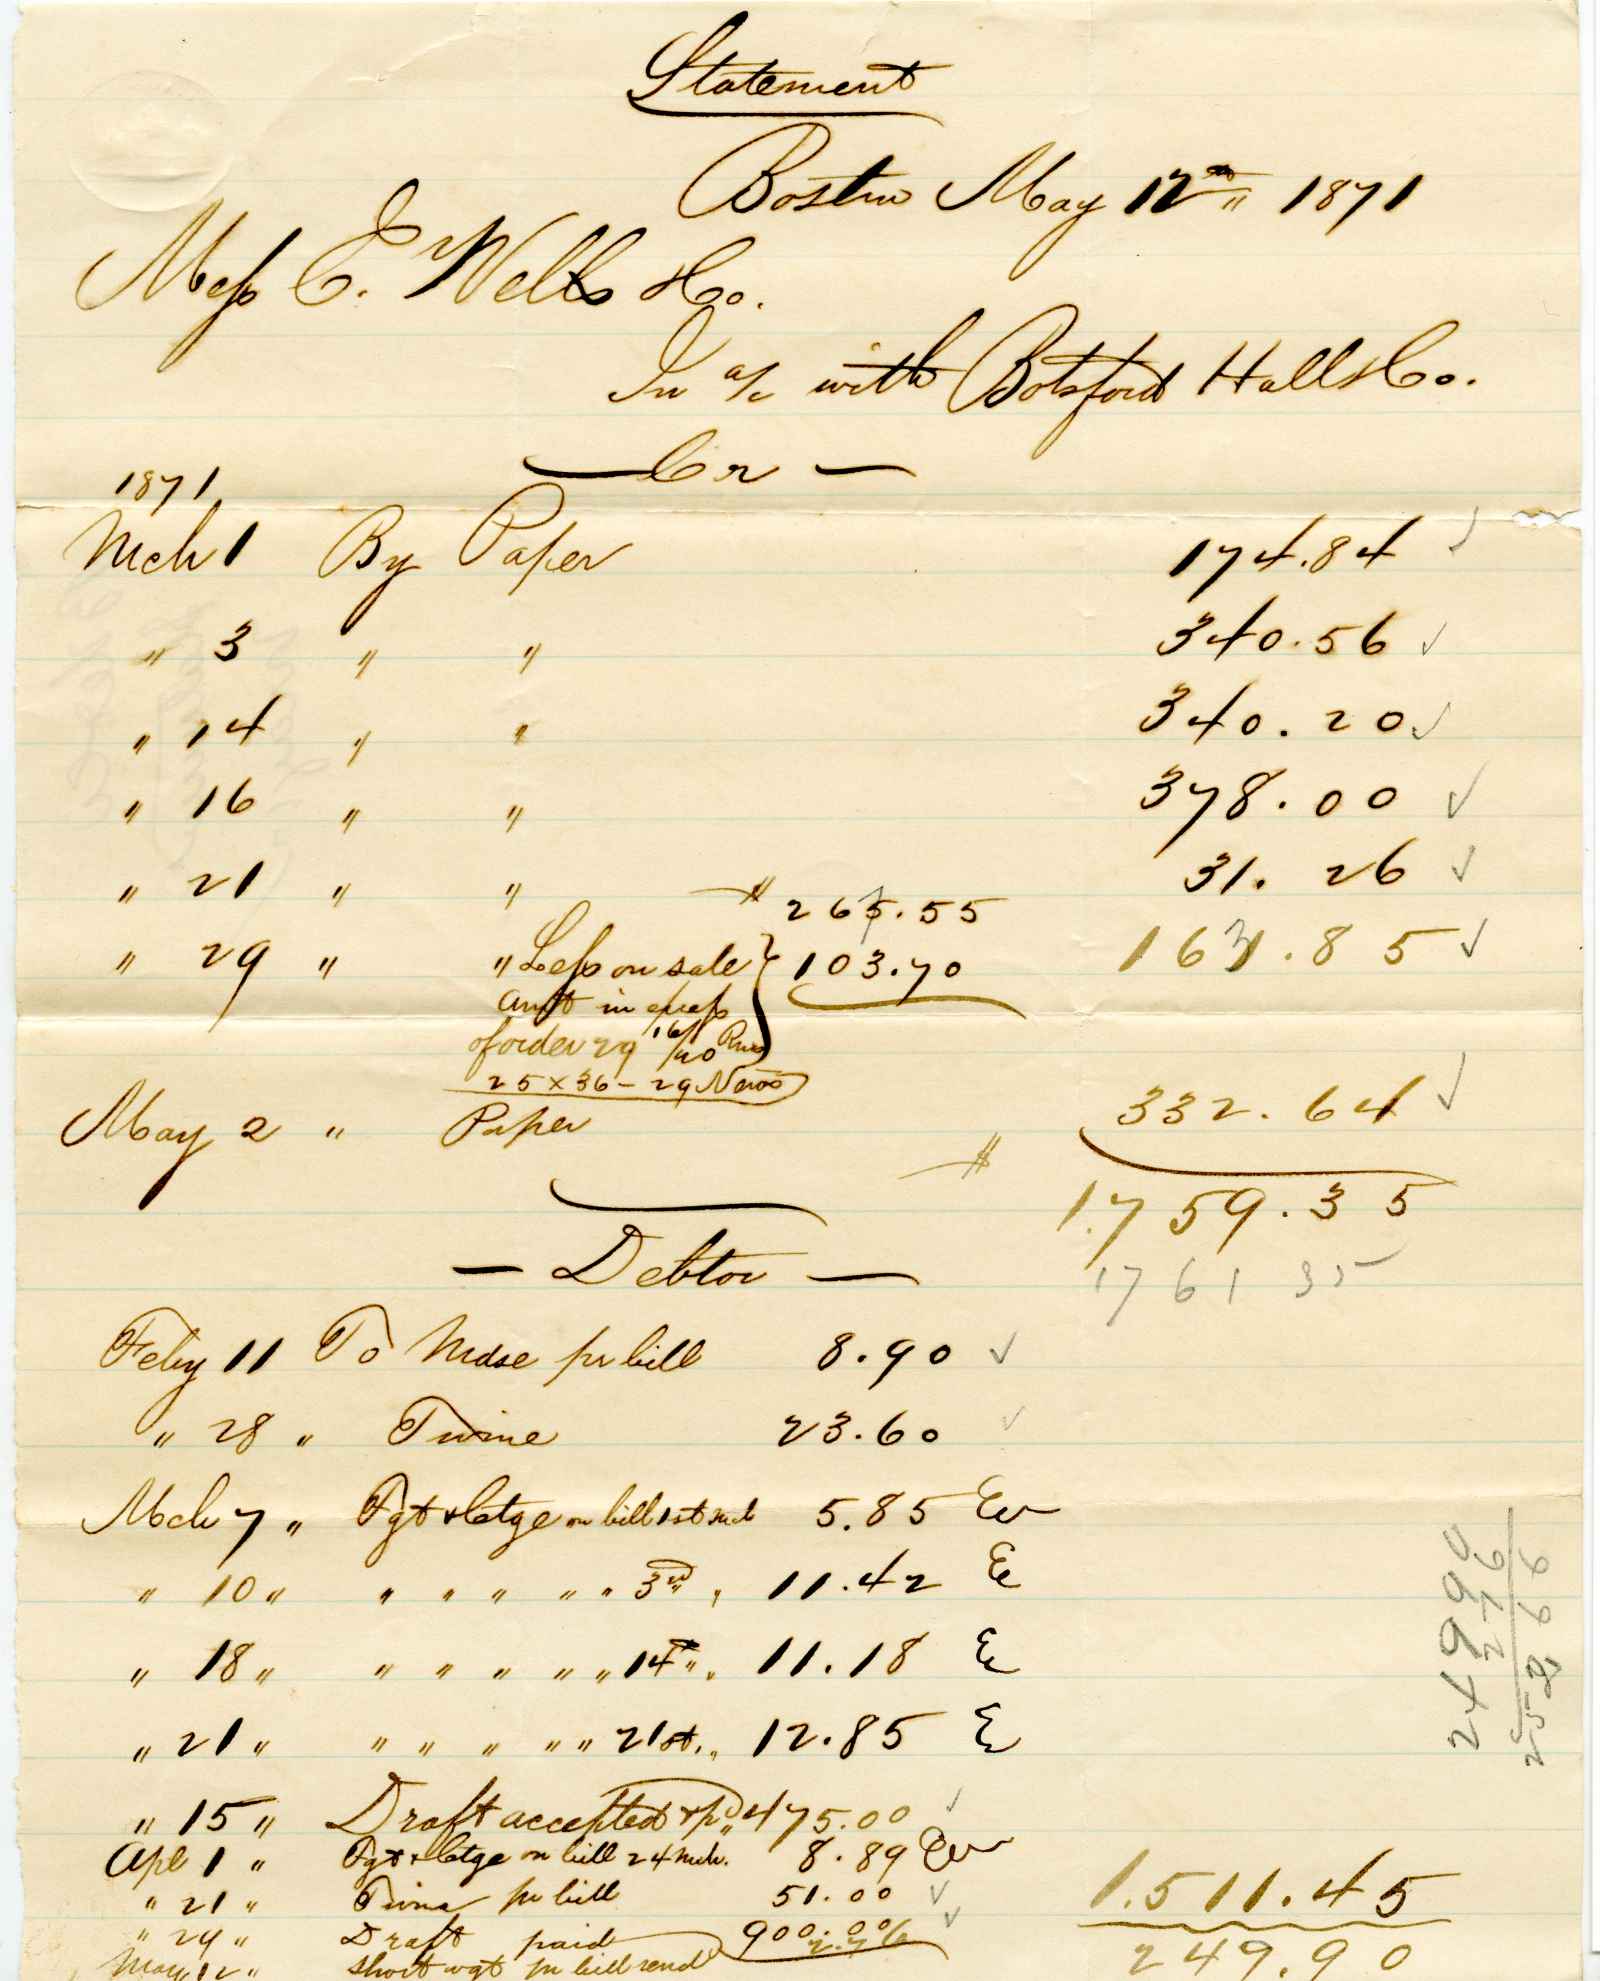 Statement
Boston May 12th " 1871
Mess E. Wells & Co.
In a/c with Botsford Hall & Co.
— Cr —
1871
Mch 1 By Paper 174.84 ✓
" 3 " " 340.56 ✓
" 14 " " 340.20 ✓
" 16 " " 378.00 ✓
" 21 " " 31.26 ✓
" 29 " " Less on sale } $ 265.55 103.70 161.85 ✓
amt in excess
of order 29 16/20 Rms
25 x 36 – 29 News
May 2 " Paper 332.64 ✓
$ 1.759.35
1761 35
— Debtor —
Feby 11 To Mdse pr bill 8.90 ✓
" 28 " Twine 23.60 ✓
Mch 7 " Fgt & Ctge on bill 1st Mch 5.85
" 10 " " " " " " 3rd " 11.42
" 18 " " " " " " 14th " 11.18
" 21 " " " " " " 21st. " 12.85
" 15 " Draft accepted & pd " 475.00 ✓
Apl 1 " Fgt & Ctge on bill 24 Mch. 8.89
" 21 " Twine pr bill 51.00 ✓
" 29 " Draft paid 900.00 ✓
May 12 " Short wgt pr bill rend 2.76
1.511.45
249.90
249 90
2 76
252 66